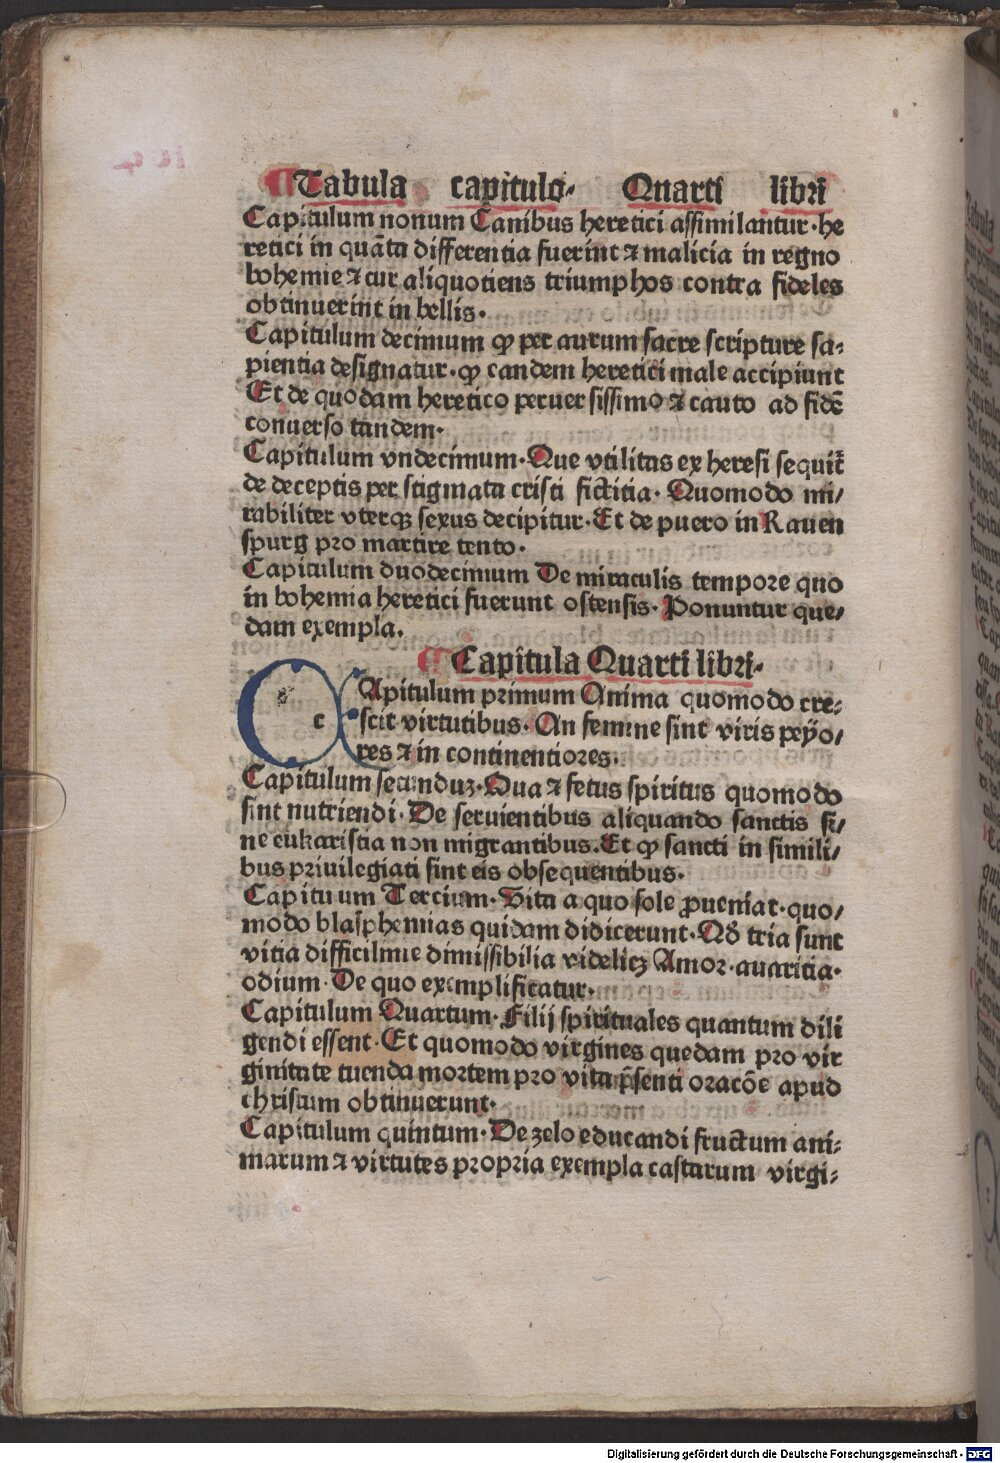 Tabula capitulo⸗ Quarti libri
Capitulum nonum Canibus heretici assimilantur·he
retici in quāta differentia fuerint ⁊ malicia in regno
bohemie ⁊ cur aliquotiens triumphos contra fideles
obtinuerint in bellis·
Capitulum decimum ꝙ per aurum sacre scripture sa⸗
pientia designatur·ꝙ eandem heretici male accipiunt
Et de quodam heretico peruersissimo ⁊ cauto ad fidē
conuerso tandem·
Capitulum vndecimum·Que vtilitas ex heresi sequit̄
de deceptis per stigmata cristi fictitia· Quomodo mi/
rabiliter vterqꝫ sexus decipitur·Et de puero in Rauen
spurg pro martire tento·
Capitulum duodecimum De miraculis tempore quo
in bohemia heretici fuerunt ostensis· Ponuntur que/
dam exempla.
Capitula Quarti libri·
c Apitulum primum Anima quomodo cre⸗
scit virtutibus· An femine sint viris peyo/
res ⁊ in continentiores·
Capitulum secunduꝫ·Qua ⁊ fetus spiritus quomodo
sint nutriendi· De seruientibus aliquando sanctis si/
ne eukaristia non migrantibus.Et ꝙ sancti in simili/
bus priuilegiati sint eis obsequentibus·
Capitu um Tercium· Vita a quo sole ꝓueniat·quo/
modo blasphemias quidam didicerunt· Qđ tria sunt
vitia difficilmie dimissibilia videlicꝫ Amor·auaritia·
odium· De quo exemplificatur·
Capitulum Quartum· Filij spirituales quantum dili
gendi essent· Et quomodo virgines quedam pro vir
ginitate tuenda mortem pro vita p̄senti oracōe apud
christum obtinuerunt·
Capitulum quintum· De zelo educandi fructum ani⸗
marum ⁊ virtutes propria exempla castarum virgi⸗
Digitalisierung gefördert durch die Deutsche Forschungsgemeinschaft - DFG